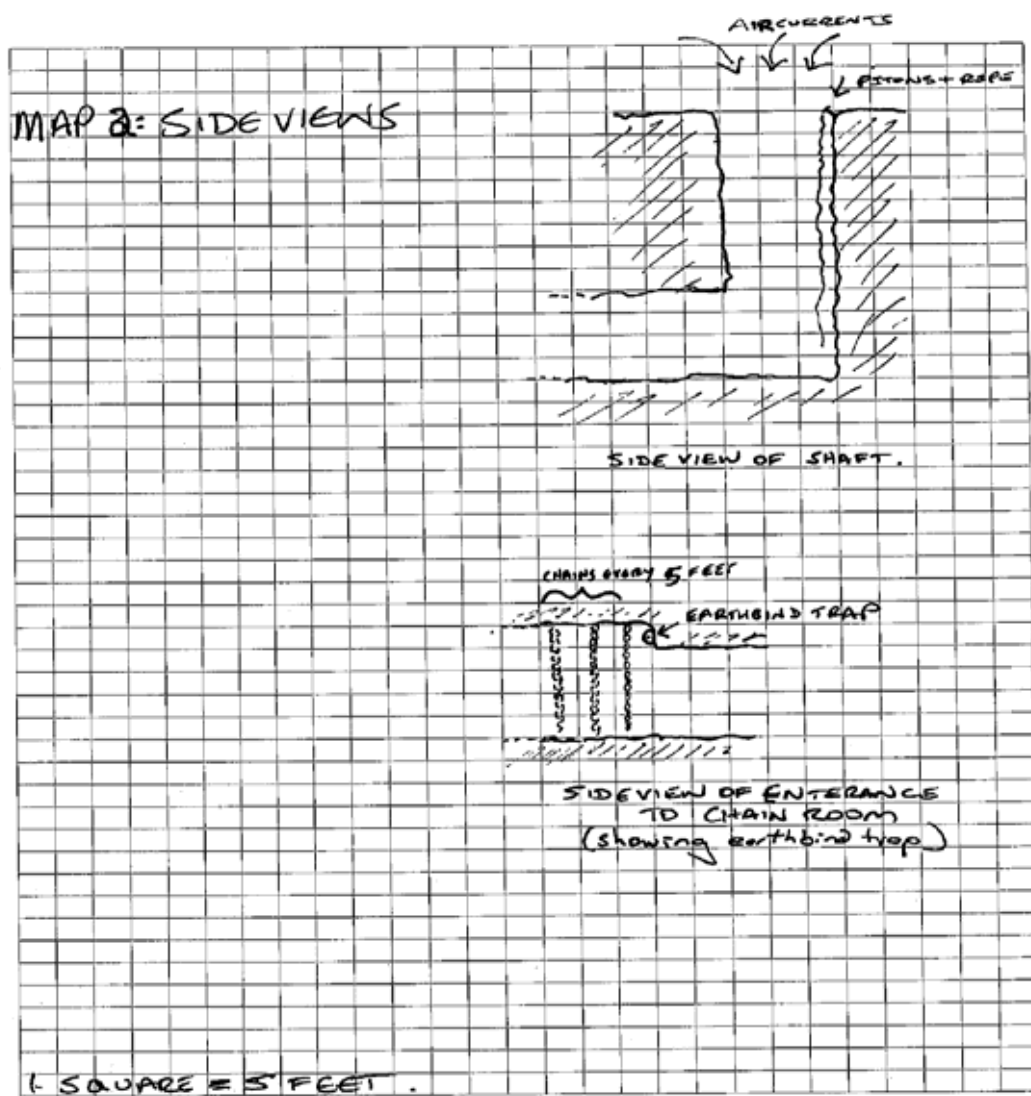 AIRCURRENTS
PITONS + ROPE
MAP 2: SIDE VIEWS
SIDE VIEW OF SHAFT.
CHAINS EVERY 5 FEET
EARTHBIND TRAP
SIDEVIEW OF ENTERANCE
TO CHAIN ROOM
(showing earthbind trap)
1 SQUARE = 5 FEET.